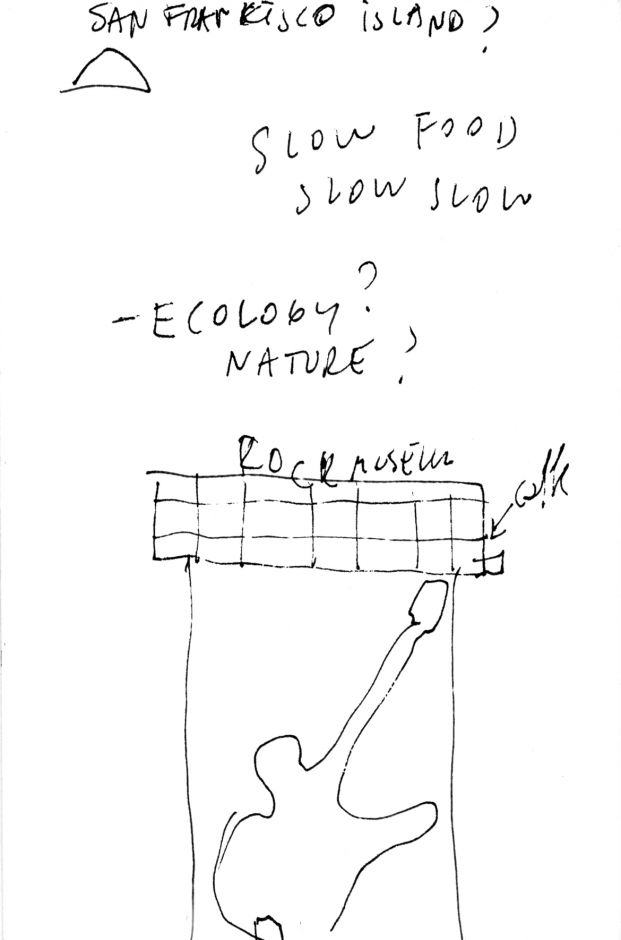 SAN FRANCISCO ISLAND?
SLOW FOOD
SLOW SLOW
- ECOLOGY?
NATURE?
ROCK MUSEUM